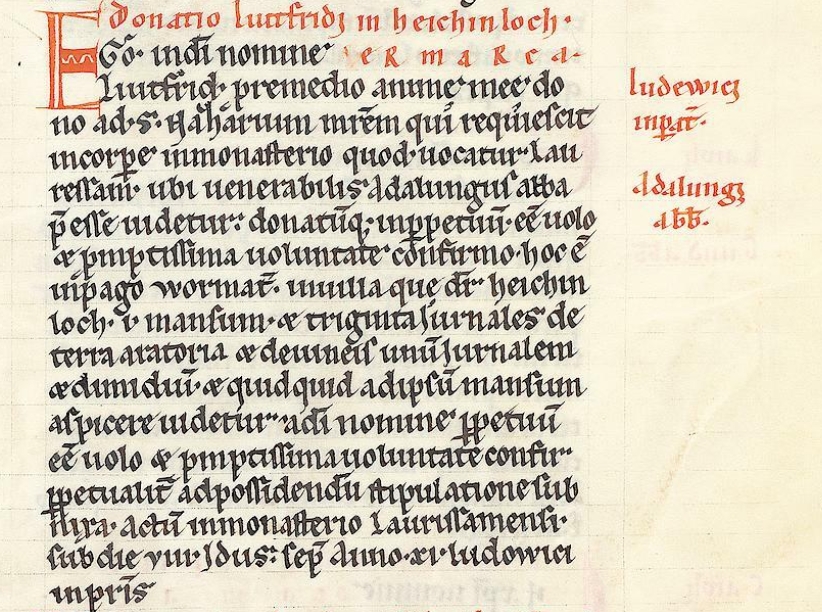 Donatio liutfridi in heichinloch.
EGo. in dī nomine ET marca.
Liutfrid. premedio anime mee do
no ad. S. Nazarium mr̄em qui requiescit
incorpe inmonasterio quod uocatur. Lau
ressam. ubi uenerabilis adalungus abba
p̄esse uidetur. donatūq; inppetuū. eē uolo
& pmptissima uoluntate cōfirmo. hoc ē
inpago wormat̄. inuilla que dr̄ heichin
loch. i. mansum. & triginta Jurnales de
terra aratoria & deuineis unū Jurnalem
& dimidiū. & quidquid adipsū mansum
aspicere uidetur. adī nomine ppetuū
eē uolo & pmptissima uoluntate confir
ppetualit̄ adpossidendū stipulatione sub
nixa. actū inmonasterio Laurissamensi.
sub die VIII Jdus. sep̄ Anno. xi. ludowici
inpr̄is
ludewici
inpat̄.
Adalungi
abb̄.